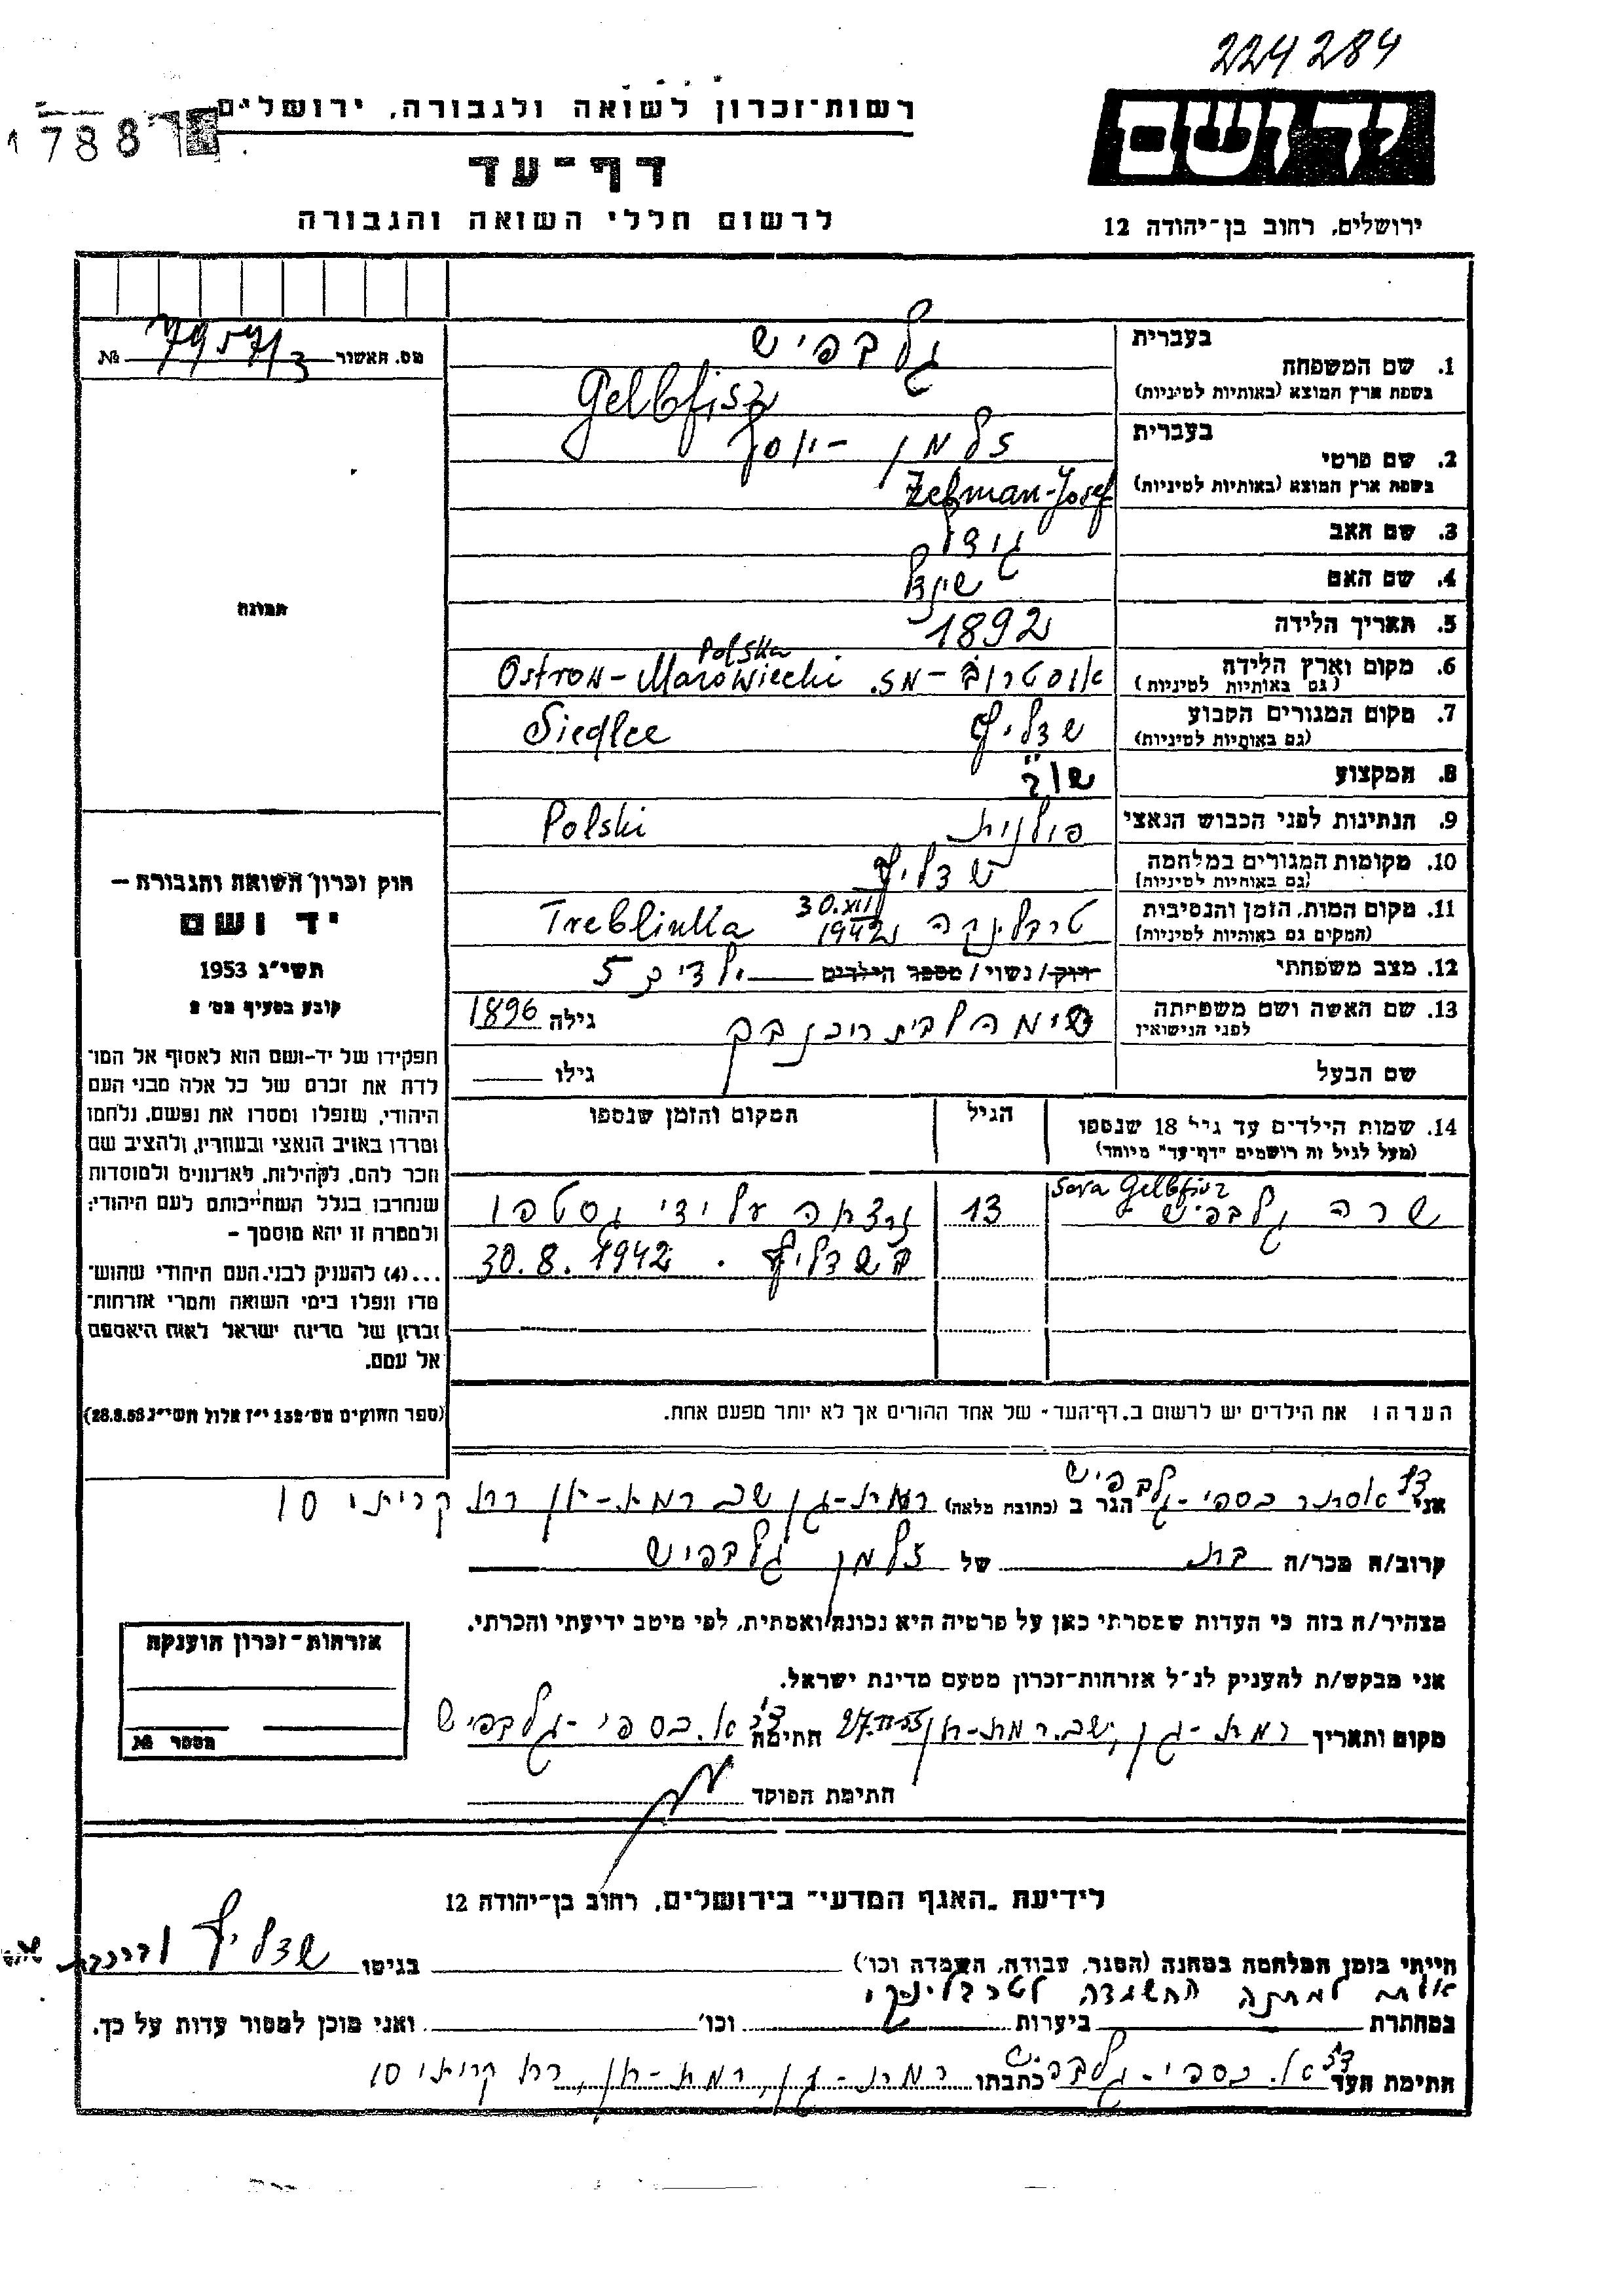 224284
רשות־זכרון לשואה ולגבורה, ירושלים
יד ושם
1788
דף־עד
לרשום חללי השואה והגבורה
ירושלים, רחוב בן־יהודה 12
מס. האשור № 79571/3
בעברית גלבפיש
1. שם המשפחה
בשפת ארץ המוצא (באותיות לטיניות) Gelbfisz
בעברית זלמן - יוסף
2. שם פרטי
בשפת ארץ המוצא (באותיות לטיניות) Zelman-Josef
3. שם האב
4. שם האם
תמונה
5. תאריך הלידה 1892
Polska
6. מקום וארץ הלידה אוסטרוב - מז. Ostrow-Mazowiecki
(גם באותיות לטיניות)
7. מקום המגורים הקבוע שדליץ Siedlce
(גם באותיות לטיניות)
8. המקצוע שו"ב
9. הנתינות לפני הכבוש הנאצי פולנית Polski
10. מקומות המגורים במלחמה שדליץ
(גם באותיות לטיניות)
11. מקום המות, הזמן והנסיבות טרבלינקה 30.XII 1942 Treblinka
(המקום גם באותיות לטיניות)
12. מצב משפחתי רווק/נשוי/מספר הילדים ילדים 5
13. שם האשה ושם משפחתה לפני הנישואין שימה לבית גילה 1896
שם הבעל גילו
14. שמות הילדים עד גיל 18 שנספו הגיל המקום והזמן שנספו
(מעל לגיל זה רושמים "דף־עד" מיוחד)
Sara Gelbfisz
שרה גלבפיש 13 נרצחה על ידי גסטפו
בשדליץ . 30.8.1942
חוק זכרון השואה והגבורה —
יד ושם
תשי"ג 1953
קובע בסעיף מס׳ 2
תפקידו של יד-ושם הוא לאסוף אל המו־
לדת את זכרם של כל אלה מבני העם
היהודי, שנפלו ומסרו את נפשם, נלחמו
ומרדו באויב הנאצי ובעוזריו, ולהציב שם
וזכר להם, לקהילות, לארגונים ולמוסדות
שנחרבו בגלל השתייכותם לעם היהודי;
ולמטרה זו יהא מוסמך —
...(4) להעניק לבני העם היהודי שהוש־
מדו ונפלו בימי השואה והמרי אזרחות־
זכרון של מדינת ישראל לאות היאספם
אל עמם.
(ספר החוקים מס׳ 132 י"ז אלול תשי"ג 28.8.53)
הערה: את הילדים יש לרשום ב"דף־העד" של אחד ההורים אך לא יותר מפעם אחת.
אני ד"ר אסתר כספי-גלבפיש הגר ב (כתובת מלאה) רמת-גן שכ. רמת-חן רח קריתי 10
קרוב/ה מכר/ה בת של זלמן גלבפיש
מצהיר/ה בזה כי העדות שמסרתי כאן על פרטיה היא נכונה ואמתית, לפי מיטב ידיעתי והכרתי.
אני מבקש/ת להעניק לנ"ל אזרחות־זכרון מטעם מדינת ישראל.
מקום ותאריך רמת-גן, שכ. רמת-חן 27.II-55 חתימה ד"ר א. כספי-גלבפיש
חתימת הפוקד
אזרחות־זכרון הוענקה
מספר №
לידיעת "האגף המדעי" בירושלים, רחוב בן־יהודה 12
הייתי בזמן המלחמה במחנה (הסגר, עבודה, השמדה וכו׳) בגיטו שדליץ
אותי למחנה השמדה לטרבלינקי
במחתרת ביערות וכו׳ ואני מוכן למסור עדות על כך.
חתימת העד ד"ר א. כספי-גלבפיש כתבתו רמת-גן, רמת-חן, רח קריתי 10